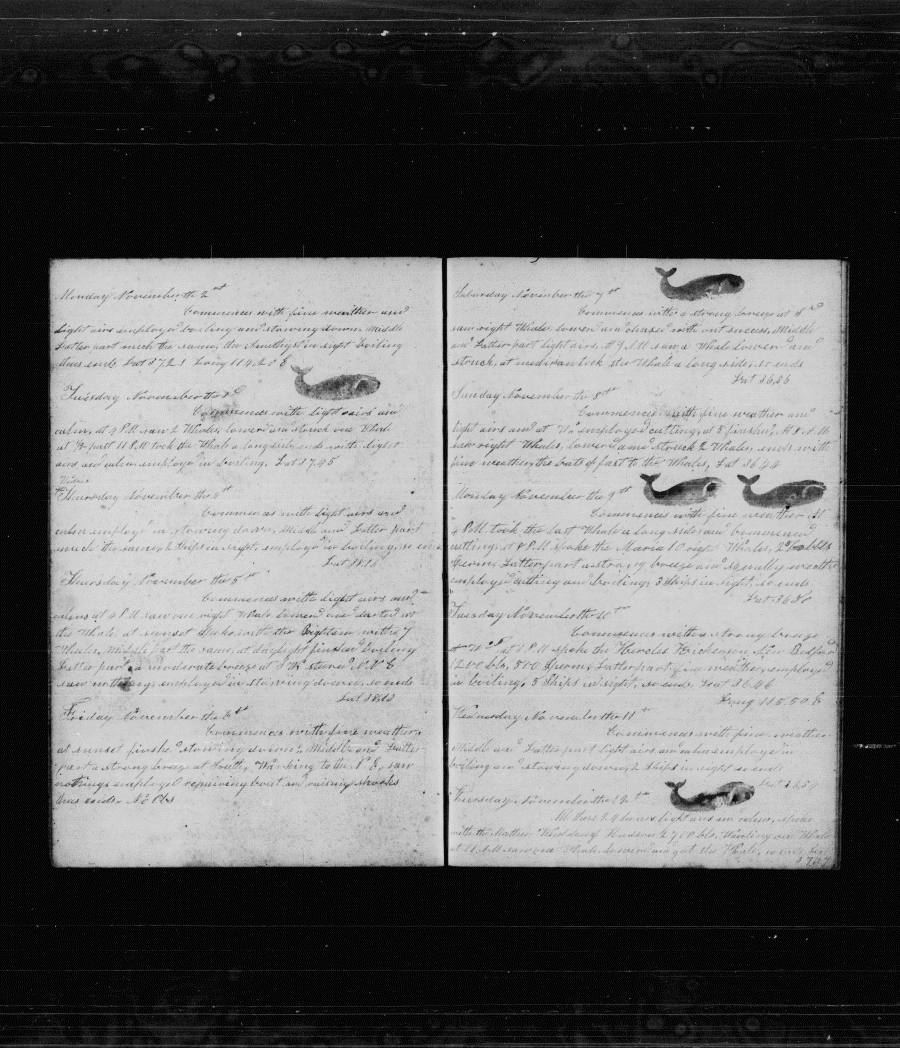 Monday November the 2nd
Commences with fine weather and
light airs employd boiling and stowing down, Middle
Latter part much the same, the in sight boiling
thus ends Lat 37.2 Long 114.20 E
Tuesday November the 3d
Commences with light airs and
calm, at 4 PM saw 2 Whales, lowerd and struck one Whale
at ½ past 11 PM took the Whale a long side, ends with light
airs and calm employd in boiling. Lat 37.45
Thursday November the 4th
Commences with light airs and
calm employd in stowing down, Middle and Latter part
much the same, 2 ships in sight, employd in boiling, so ends
Lat 38.16
Thursday November the 5th
Commences with light airs and
calms at 4 PM saw one right Whale lowerd and darted at
the Whale, at sunset spoke with the Brighton with 7
Whales, Middle part the same, at daylight finishd boiling
Latter part a moderate breeze at steerd N.N.E
saw nothing, employd in stowing down, so ends
Lat 38.12
Friday November the 6th
Commences with fine weather,
at sunset finishd stowing down, Middle and Latter
part a strong breeze at South, working to the N.E, saw
nothing employd repairing boat and
thus ends. No Obs
Saturday November the 7th
Commences with a strong breeze at
saw right Whales lowerd and chased with out success, Middle
and Latter part light airs. At 9 AM saw a Whale lowerd and
struck, at meridian took the Whale a long side, so ends
Lat 36.36
Sunday November the 8th
Commences with fine weather and
light airs and at employed cutting, at 5 finishd. At AM
saw right Whales, lowerd and struck 2 Whales, ends with
fine weather, the boats of fast to the Whales, Lat 36.44
Monday November the 9th
Commences with fine weather At
4 PM took the last Whale a long side and commenced
cutting, at 8 PM spoke the Maria 10 right Whales, bbls
Sperm, Latter part a strong breeze and squally weather
employd cutting and boiling, 3 Ships in sight, so ends
Lat 36
Tuesday November the 10th
Commences with a strong breeze
at at 1 PM spoke the Hercules New Bedford
1200 bbls, 800 Sperm, Latter part fine weather, employd
in boiling, 3 Ships in sight, so ends, Lat 36.46
Long 115.50 E
Wednesday November the 11th
Commences with fine weather
Middle and Latter part light airs and calm employd in
boiling and stowing down, 2 ships in sight so ends
Lat
Thursday November the 12th
light airs and calm, spoke
with the Hudson 2700 bbls, Wanting one Whale
at AM saw one Whale lowerd and got the Whale, so ends Lat